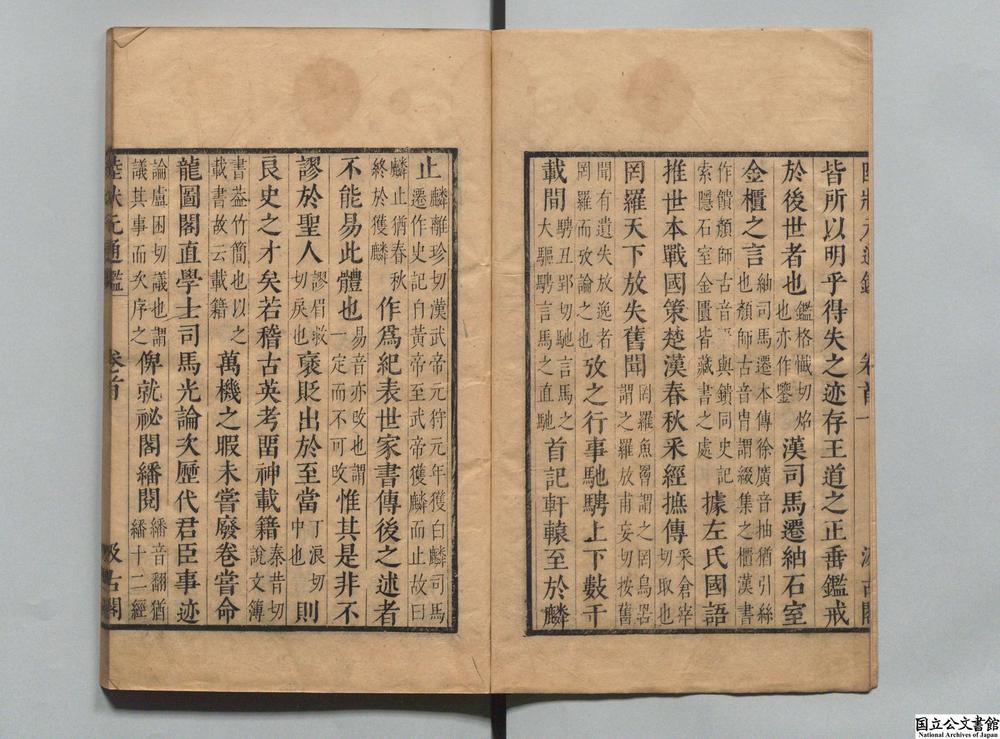 陸狀元通鑑 卷首 一 汲古閣
皆所以明乎得失之迹存王道之正垂鑑戒
於後世者也鑑格懺切焰也亦作鑒漢司馬遷紬石室
金櫃之言紬司馬遷本傳徐廣音抽猶引絲也顏師古音胄謂綴集之櫃漢書
作鐀顏師古音與鎖同史記索隱石室金匱皆藏書之處據左氏國語
推世本戰國策楚漢春秋采經摭傳采倉宰切取也
罔羅天下放失舊聞罔羅魚罟謂之罔鳥罟謂之羅放甫妄切按舊
聞有遺失放逸者罔羅而攷論之也攷之行事馳騁上下數千
載間騁丑郢切馳言馬之大驅騁言馬之直馳首記軒轅至於麟
止麟離珍切漢武帝元狩元年獲白麟司馬遷作史記自黃帝至武帝獲麟而止故曰
麟止猶春秋終於獲麟作爲紀表世家書傳後之述者
不能易此體也易音亦攺也謂一定而不可攺惟其是非不
謬於聖人謬眉救切戾也襃貶出於至當丁浪切中也則
良史之才矣若稽古英考畱神載籍秦昔切說文簿
書葢竹簡也以之載書故云載籍萬機之暇未嘗廢卷嘗命
龍圖閣直學士司馬光論次歷代君臣事迹
論盧困切議也謂議其事而次序之俾就祕閣繙閱繙音翻猶繙十二經
陸狀元通鑑 卷首 汲古閣
国立公文書館
National Archives of Japan